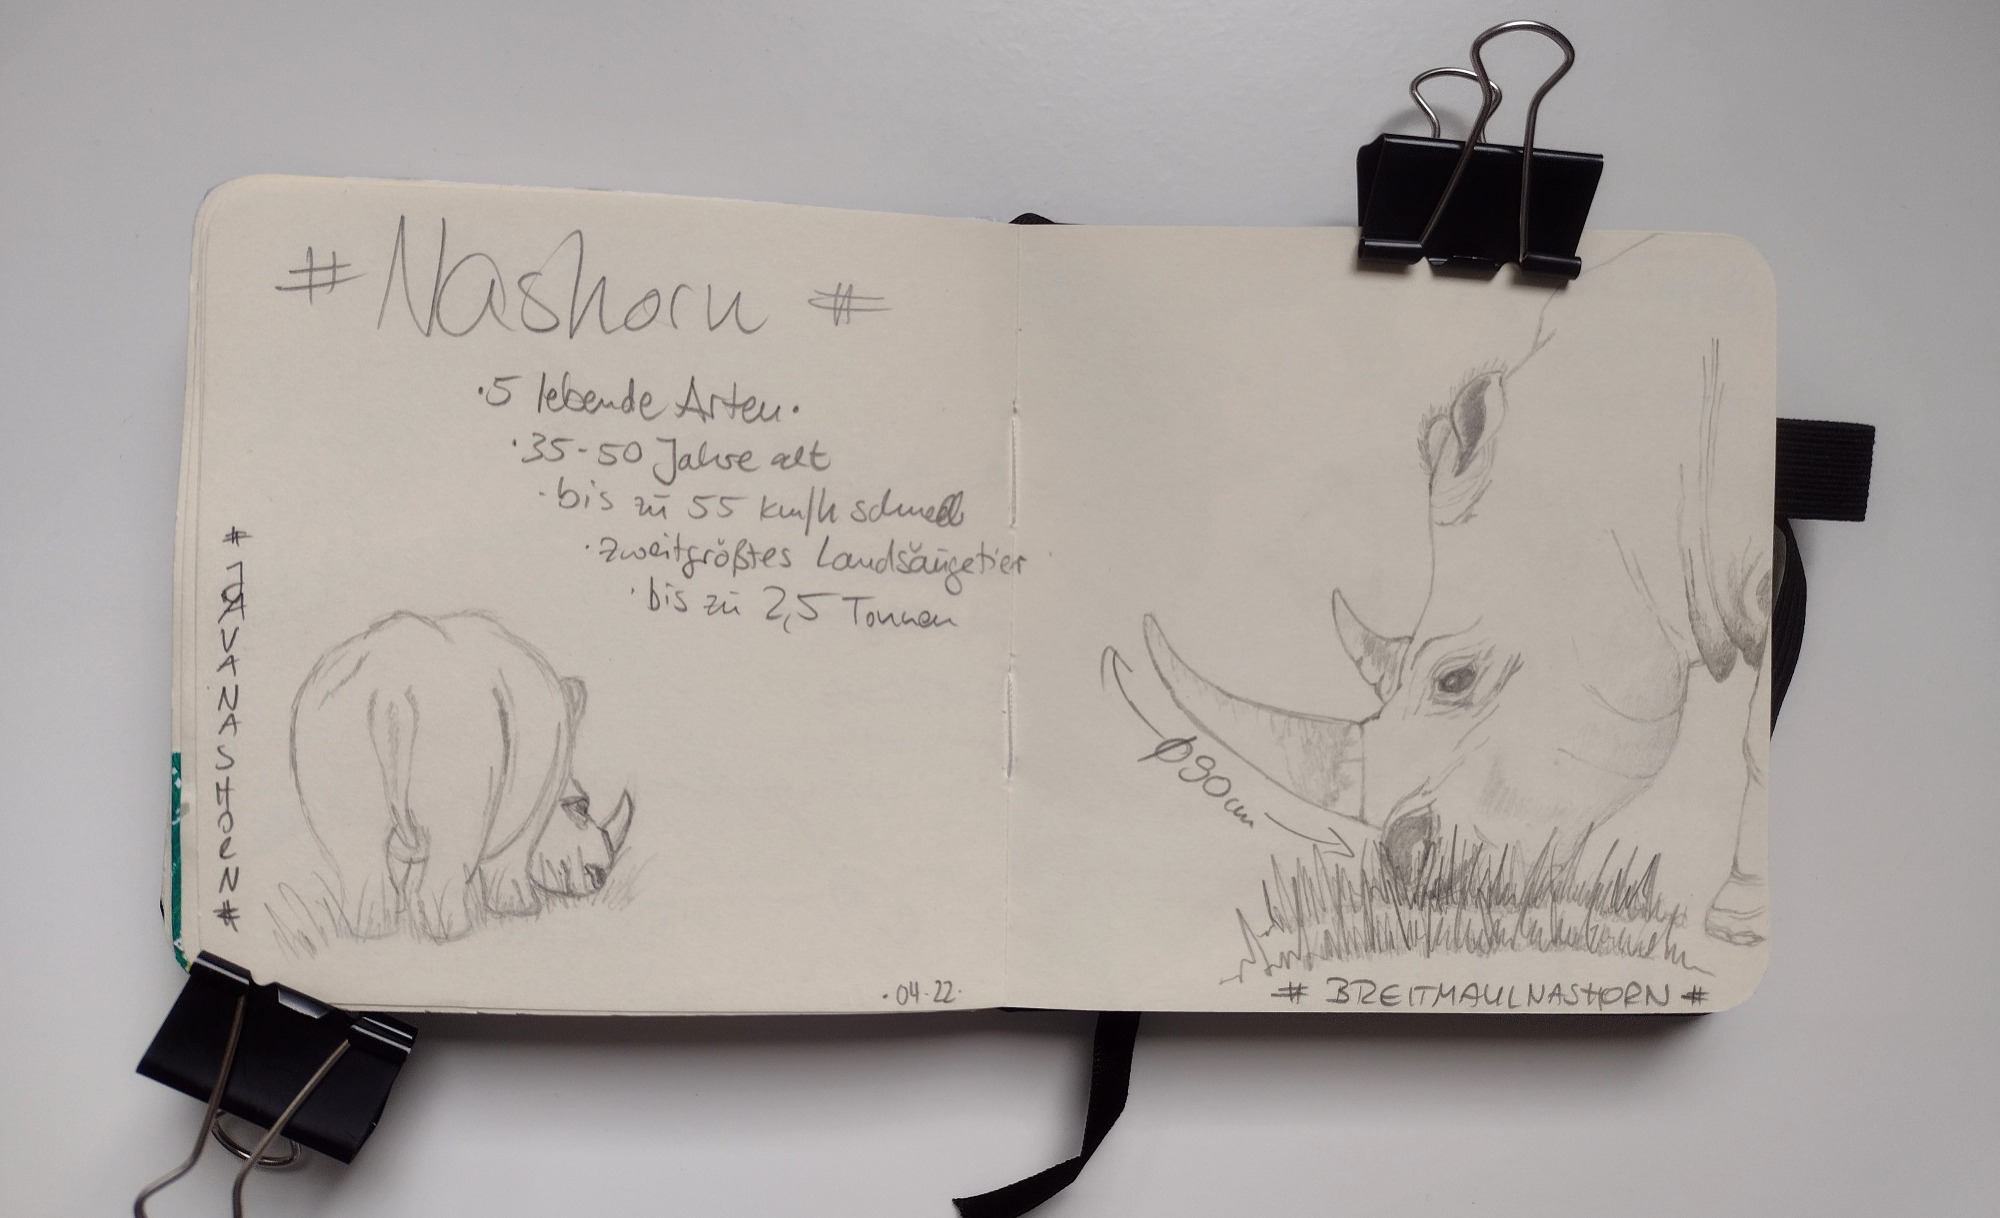 # Nashorn #
·5 lebende Arten·
·35-50 Jahre alt
·bis zu 55 km/h schnell
·zweitgrößtes Landsäugetier
·bis zu 2,5 Tonnen
# JAVANASHORN #
·04·22·
Ø90cm
# BREITMAULNASHORN #